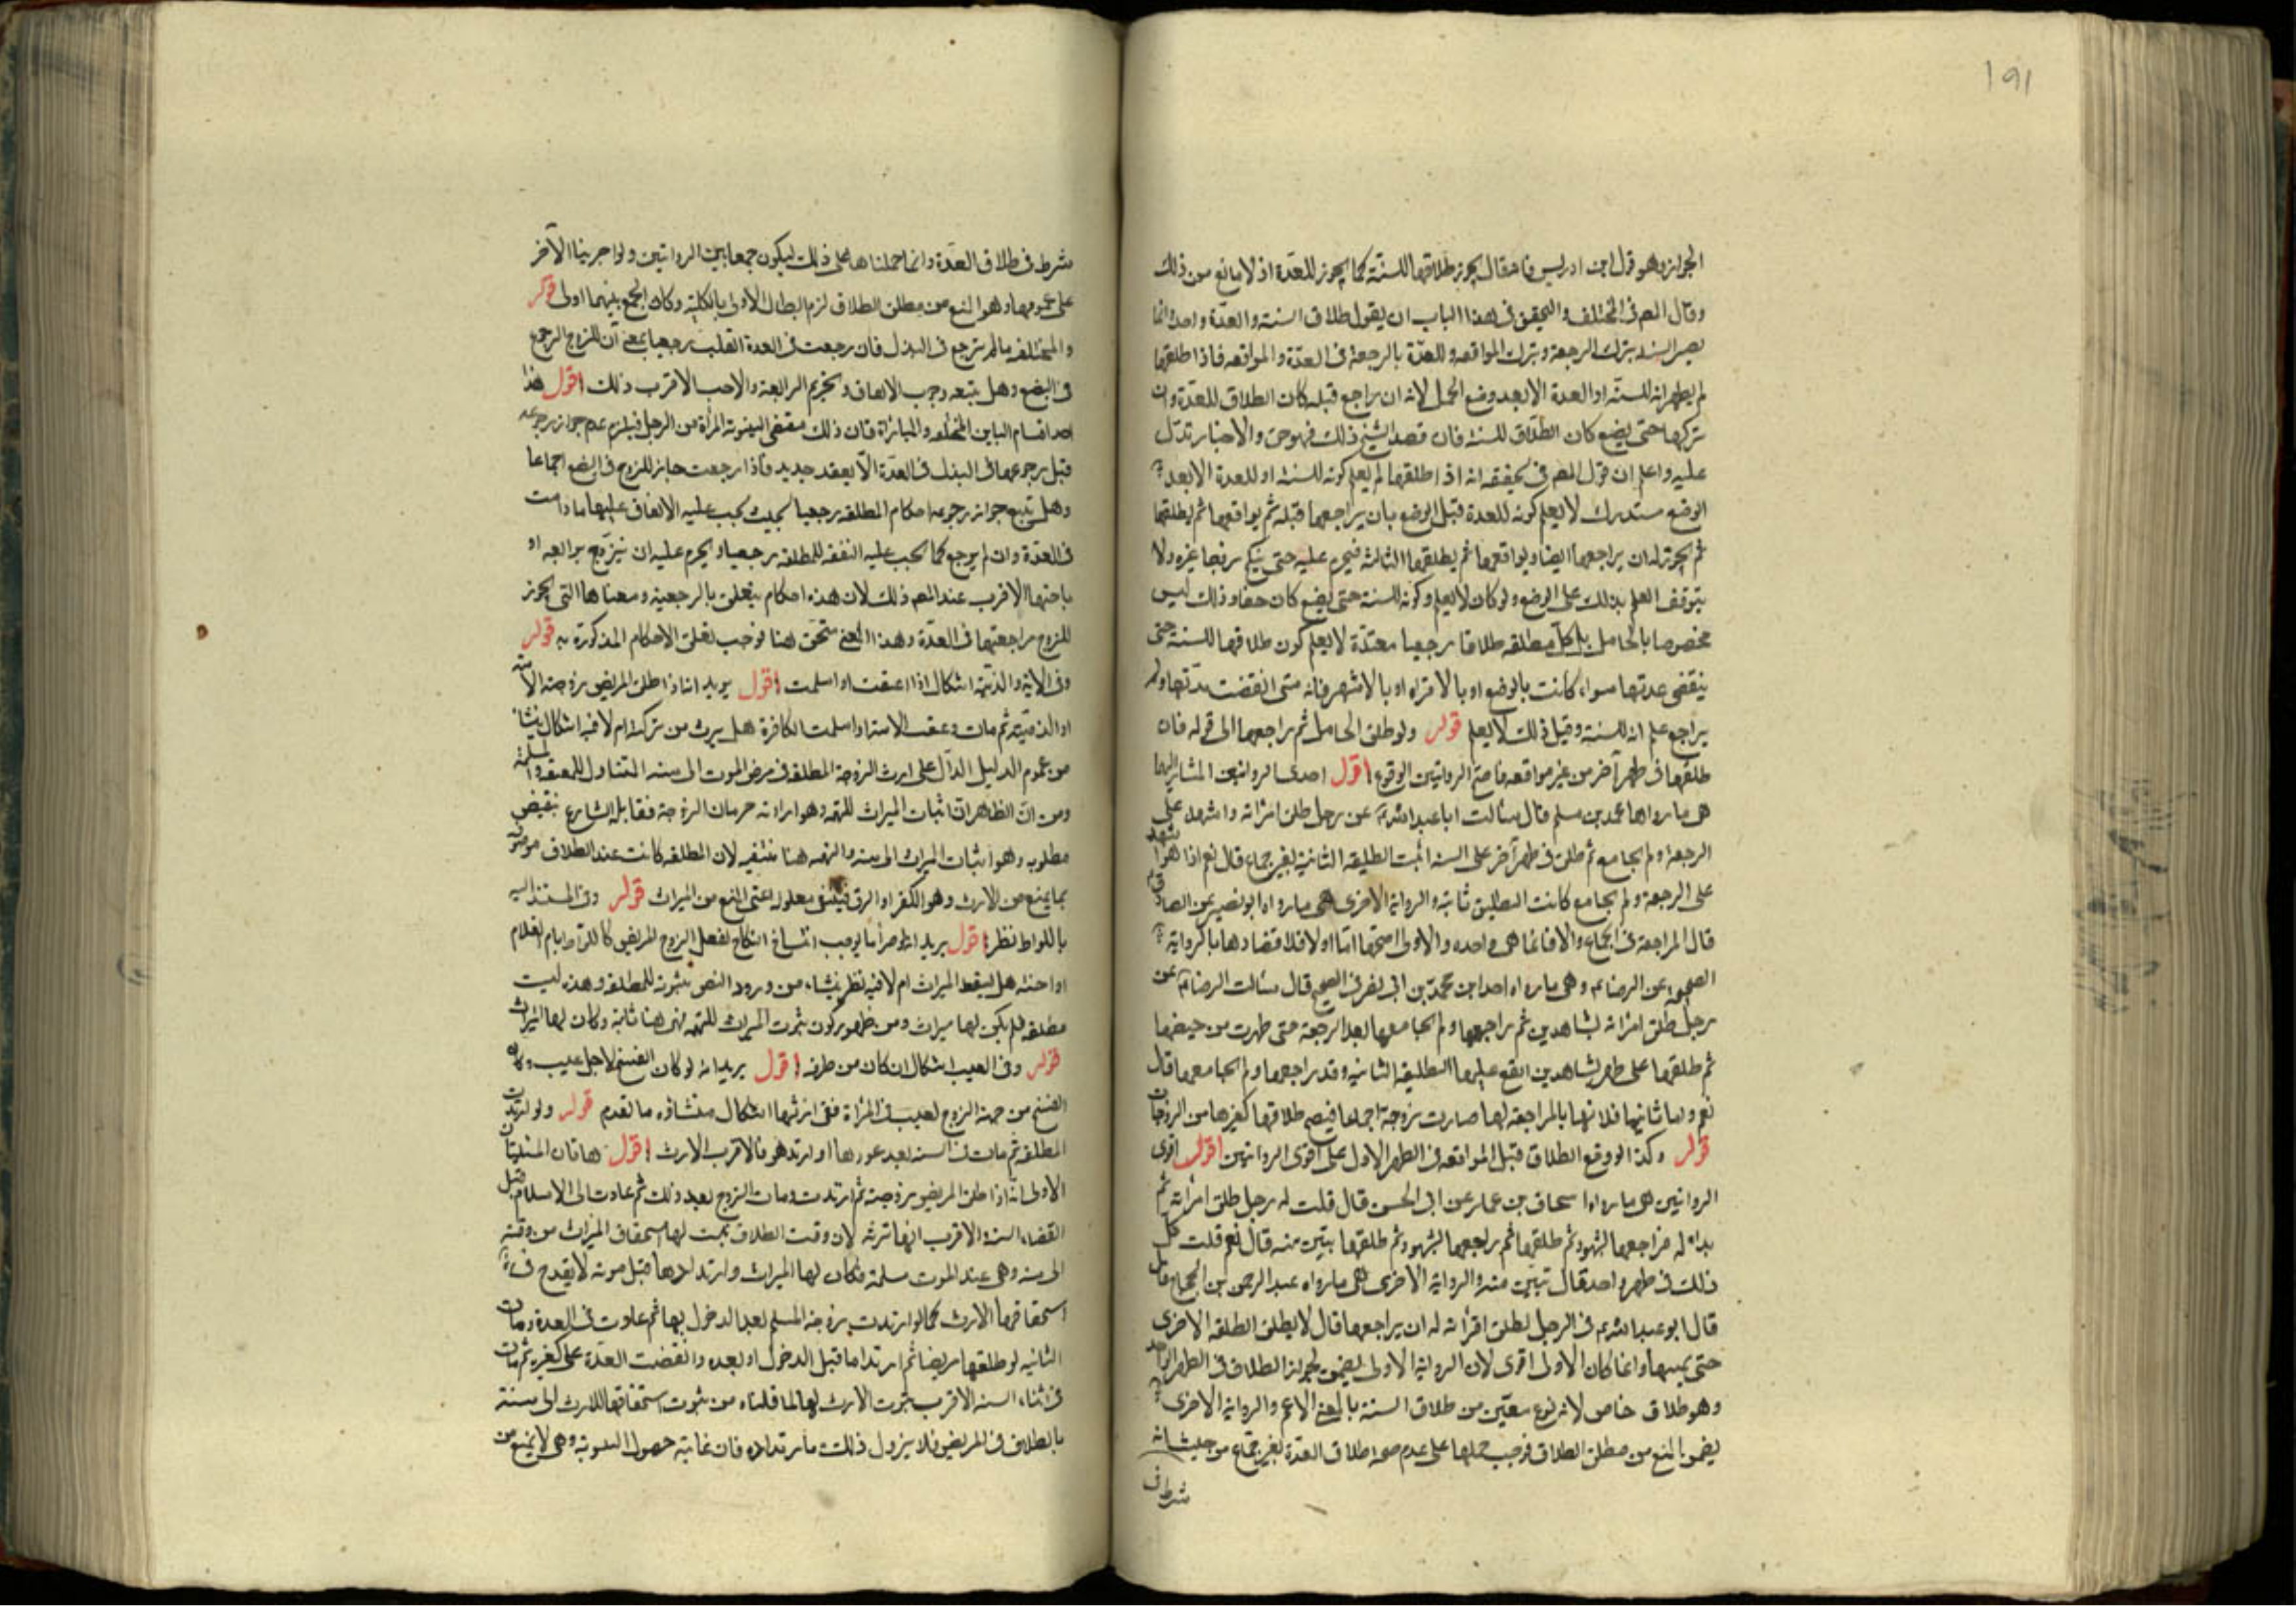 191
الجواز وهو قول ابن ادريس فانه قال يجوز طلاقها للسنّة كما يجوز للعدّة اذ لا مانع من ذلك
وقال المص في المختلف والتحقيق في هذا الباب ان يقول طلاق السنة والعدّة واحد انما
يصير السنة بترك الرجعة وبترك المواقعه وللعدّة بالرجعة في العدّة والمواقعه فاذا طلقها
لم يظهر انه للسنّة او العدة الا بعد وضع الحمل لانه ان راجع قبله كان الطلاق للعدّة وان
تركها حتى يضع كان الطلاق للسنة فان قصد الشيخ ذلك فهو حق والاخبار تدل
عليه واعلم ان قول المص في تحقيقه انه اذا طلقها لم يعلم كونه للسنة او للعدة الا بعد
الوضع مستدرك لا يعلم كونه للعدة قبل الوضع بان يراجعها قبله ثم يواقعها ثم يطلقها
ثم يجوز له ان يراجعها ايضا ويواقعها ثم يطلقها الثالثة فيحرم عليه حتى ينكح زوجا غيره ولا
يتوقف العلم بذلك على الوضع ولو كان لا يعلم وكونه للسنة حتى يضع كان حقا وذلك ليس
مخصوصا بالحامل بل كل مطلقه طلاقا رجعيا معتدّة لا يعلم كون طلاقها للسنة حتى
ينقضي عدتها سواء كانت بالوضع او بالاقراء او بالاشهر فانه متى انقضت عدتها ولم
يراجع علم انه للسنة وقبل ذلك لا يعلم قوله ولو طلق الحامل ثم راجعها الى قوله فان
طلقها في طهر آخر من غير مواقعه فاصح الروايتين الوقوع اقول احدى الروايتين المشار اليهما
هي ما رواها محمد بن مسلم قال سالت ابا عبد الله عن رجل طلق امراته واشهد على
الرجعة ولم يجامع ثم طلق في طهر آخر على السنة اثبت الطليقه الثانية بغير جماع قال نعم اذا هو اشهد
على الرجعة ولم يجامع كانت التطليق ثابته والرواية الاخرى هي ما رواه ابو بصير عن الصادق
قال المراجعة في الجماع والا فانما هي واحده والاولى اصحهما اما اولا فلاعتضادها بالرواية
الصحيحه عن الرضا وهي ما رواه احمد بن محمد بن ابي نصر في الصحيح قال سالت الرضا عن
رجل طلق امراته بشاهدين ثم راجعها ولم يجامعها بعد الرجعة حتى طهرت من حيضها
ثم طلقها على طهر بشاهدين ايقع عليها التطليقه الثانيه وقد راجعها ولم يجامعها قال
نعم واما ثانيا فلانها بالمراجعه لها صارت زوجة اجماعا فيصح طلاقها كغيرها من الزوجات
قوله وكذا لو وقع الطلاق قبل المواقعه في الطهر الاول على اقوى الروايتين اقول اقوى
الروايتين هي ما رواه اسحاق بن عمار عن ابي الحسن قال قلت له رجل طلق امراته ثم
بدا له فراجعها بشهود ثم طلقها ثم راجعها بشهود ثم طلقها تبين منه قال نعم قلت كل
ذلك في طهر واحد قال تبين منه والرواية الاخرى هي ما رواه عبد الرحمن بن الحجاج قال
قال ابو عبد الله في الرجل يطلق امراته له ان يراجعها قال لا يطلق الطلقه الاخرى
حتى يمسها وانما كان الاولى اقوى لان الرواية الاولى يتضمن لجواز الطلاق في الطهر الواحد
وهو طلاق خاص لانه نوع معيّن من طلاق السنة بالمعنى الاعم والرواية الاخرى
يتضمن المنع من مطلق الطلاق فوجب حملها على عدم صحة طلاق العدّة بغير جماع من حيث انه
شرط في
شرط في طلاق العدّة وانما حملناها على ذلك ليكون جمعا بين الروايتين ولو اجرينا الآخر
على عمومها وهو المنع من مطلق الطلاق لزم ابطال الاولى بالكليّة وكان الجمع بينهما اولى قوله
والمختلعه ما لم ترجع في البذل فان رجعت في العدة انقلب رجعيا بمعنى ان للزوج الرجوع
في البضع وهل يتبعه وجوب الانفاق وتحريم الرابعة والاخت الاقرب ذلك اقول هذا
احد اقسام الباين المختلعه والمباراة فان ذلك مقتضى لبينونة المرأة من الرجل فيلزم عدم جواز رجوعه
قبل رجوعها في البذل في العدّة الا بعقد جديد فاذا رجعت جاز للزوج في البضع اجماعا
وهل يتبع جواز رجوعه احكام المطلقه رجعيا بحيث يجب عليه الانفاق عليها ما دامت
في العدّة وان لم يرجع كما يجب عليه النفقه للمطلقه رجعيا ويحرم عليه ان يتزوج برابعه او
باختها الاقرب عند المص ذلك لان هذه احكام يتعلق بالرجعية ومعناها التي يجوز
للزوج مراجعتها في العدّة وهذا المعنى متحقق هنا فوجب تعلق الاحكام المذكورة به قوله
وفي الامة والذميّة اشكال اذا اعتقت او اسلمت اقول يريد انه اذا طلق المريض زوجته الامة
او الذميّة ثم مات وعتقت الامة او اسلمت الكافرة هل يرث من تركته ام لا فيه اشكال ينشا
من عموم الدليل الدال على ارث الزوجة المطلقه في مرض الموت الى سنه المتناول للمعتقه والمسلمة
ومن انّ الظاهر ان اثبات الميراث للتهمه وهو ارادته حرمان الزوجة فقابله الشارع بنقيض
مطلوبه وهو اثبات الميراث الى سنه والتهمه هنا منتفيه لان المطلقه كانت عند الطلاق موصوفة
بما يمنع من الارث وهو الكفر او الرق فينتفي معلوله اعني المنع من الميراث قوله وفي المستند اليه
باللواط نظر اقول يريد انه لو صدر ما يوجب انفساخ النكاح بفعل الزوج المريض كاللواط بام الغلام
او اخته هل يسقط الميراث ام لا فيه نظر ينشاء من ورود النص بثبوته للمطلقه وهذه ليست
مطلقه فلم يكن لها ميراث ومن ظهور كون ثبوت الميراث للتهمه فهي هنا ثابته وكان لها الميراث
قوله وفي العيب اشكال ان كان من طرفه اقول يريد انه لو كان الفسخ لاجل عيب وكان
الفسخ من جهة الزوج لعيب في المراة ففي ارثها اشكال منشاؤه ما تقدم قوله ولو ارتدت
المطلقه ثم مات في السنه بعد عودها او ارتد هو فالاقرب الارث اقول هاتان المسئلتان
الاولى انه اذا طلق المريض زوجته ثم ارتدت ومات الزوج بعد ذلك ثم عادت الى الاسلام قبل
انقضاء السنة الاقرب انها ترثه لان وقت الطلاق ثبت لها استحقاق الميراث من وقته
الى سنه وهي عند الموت مسلمة فكان لها الميراث وارتدادها قبل موته لا يقدح في
استحقاقها الارث كما لو ارتدت زوجة المسلم بعد الدخول بها ثم عادت في العدة ومات
الثانيه لو طلقها مريضا ثم ارتد اما قبل الدخول او بعده وانقضت العدّة على كفره ثم مات
في اثناء السنه الاقرب ثبوت الارث لها لما قلناه من ثبوت استحقاقها للارث الى سنة
بالطلاق في المريض فلا يزول ذلك بارتداده فان غايته حصول البينونة وهي لا يمنع من